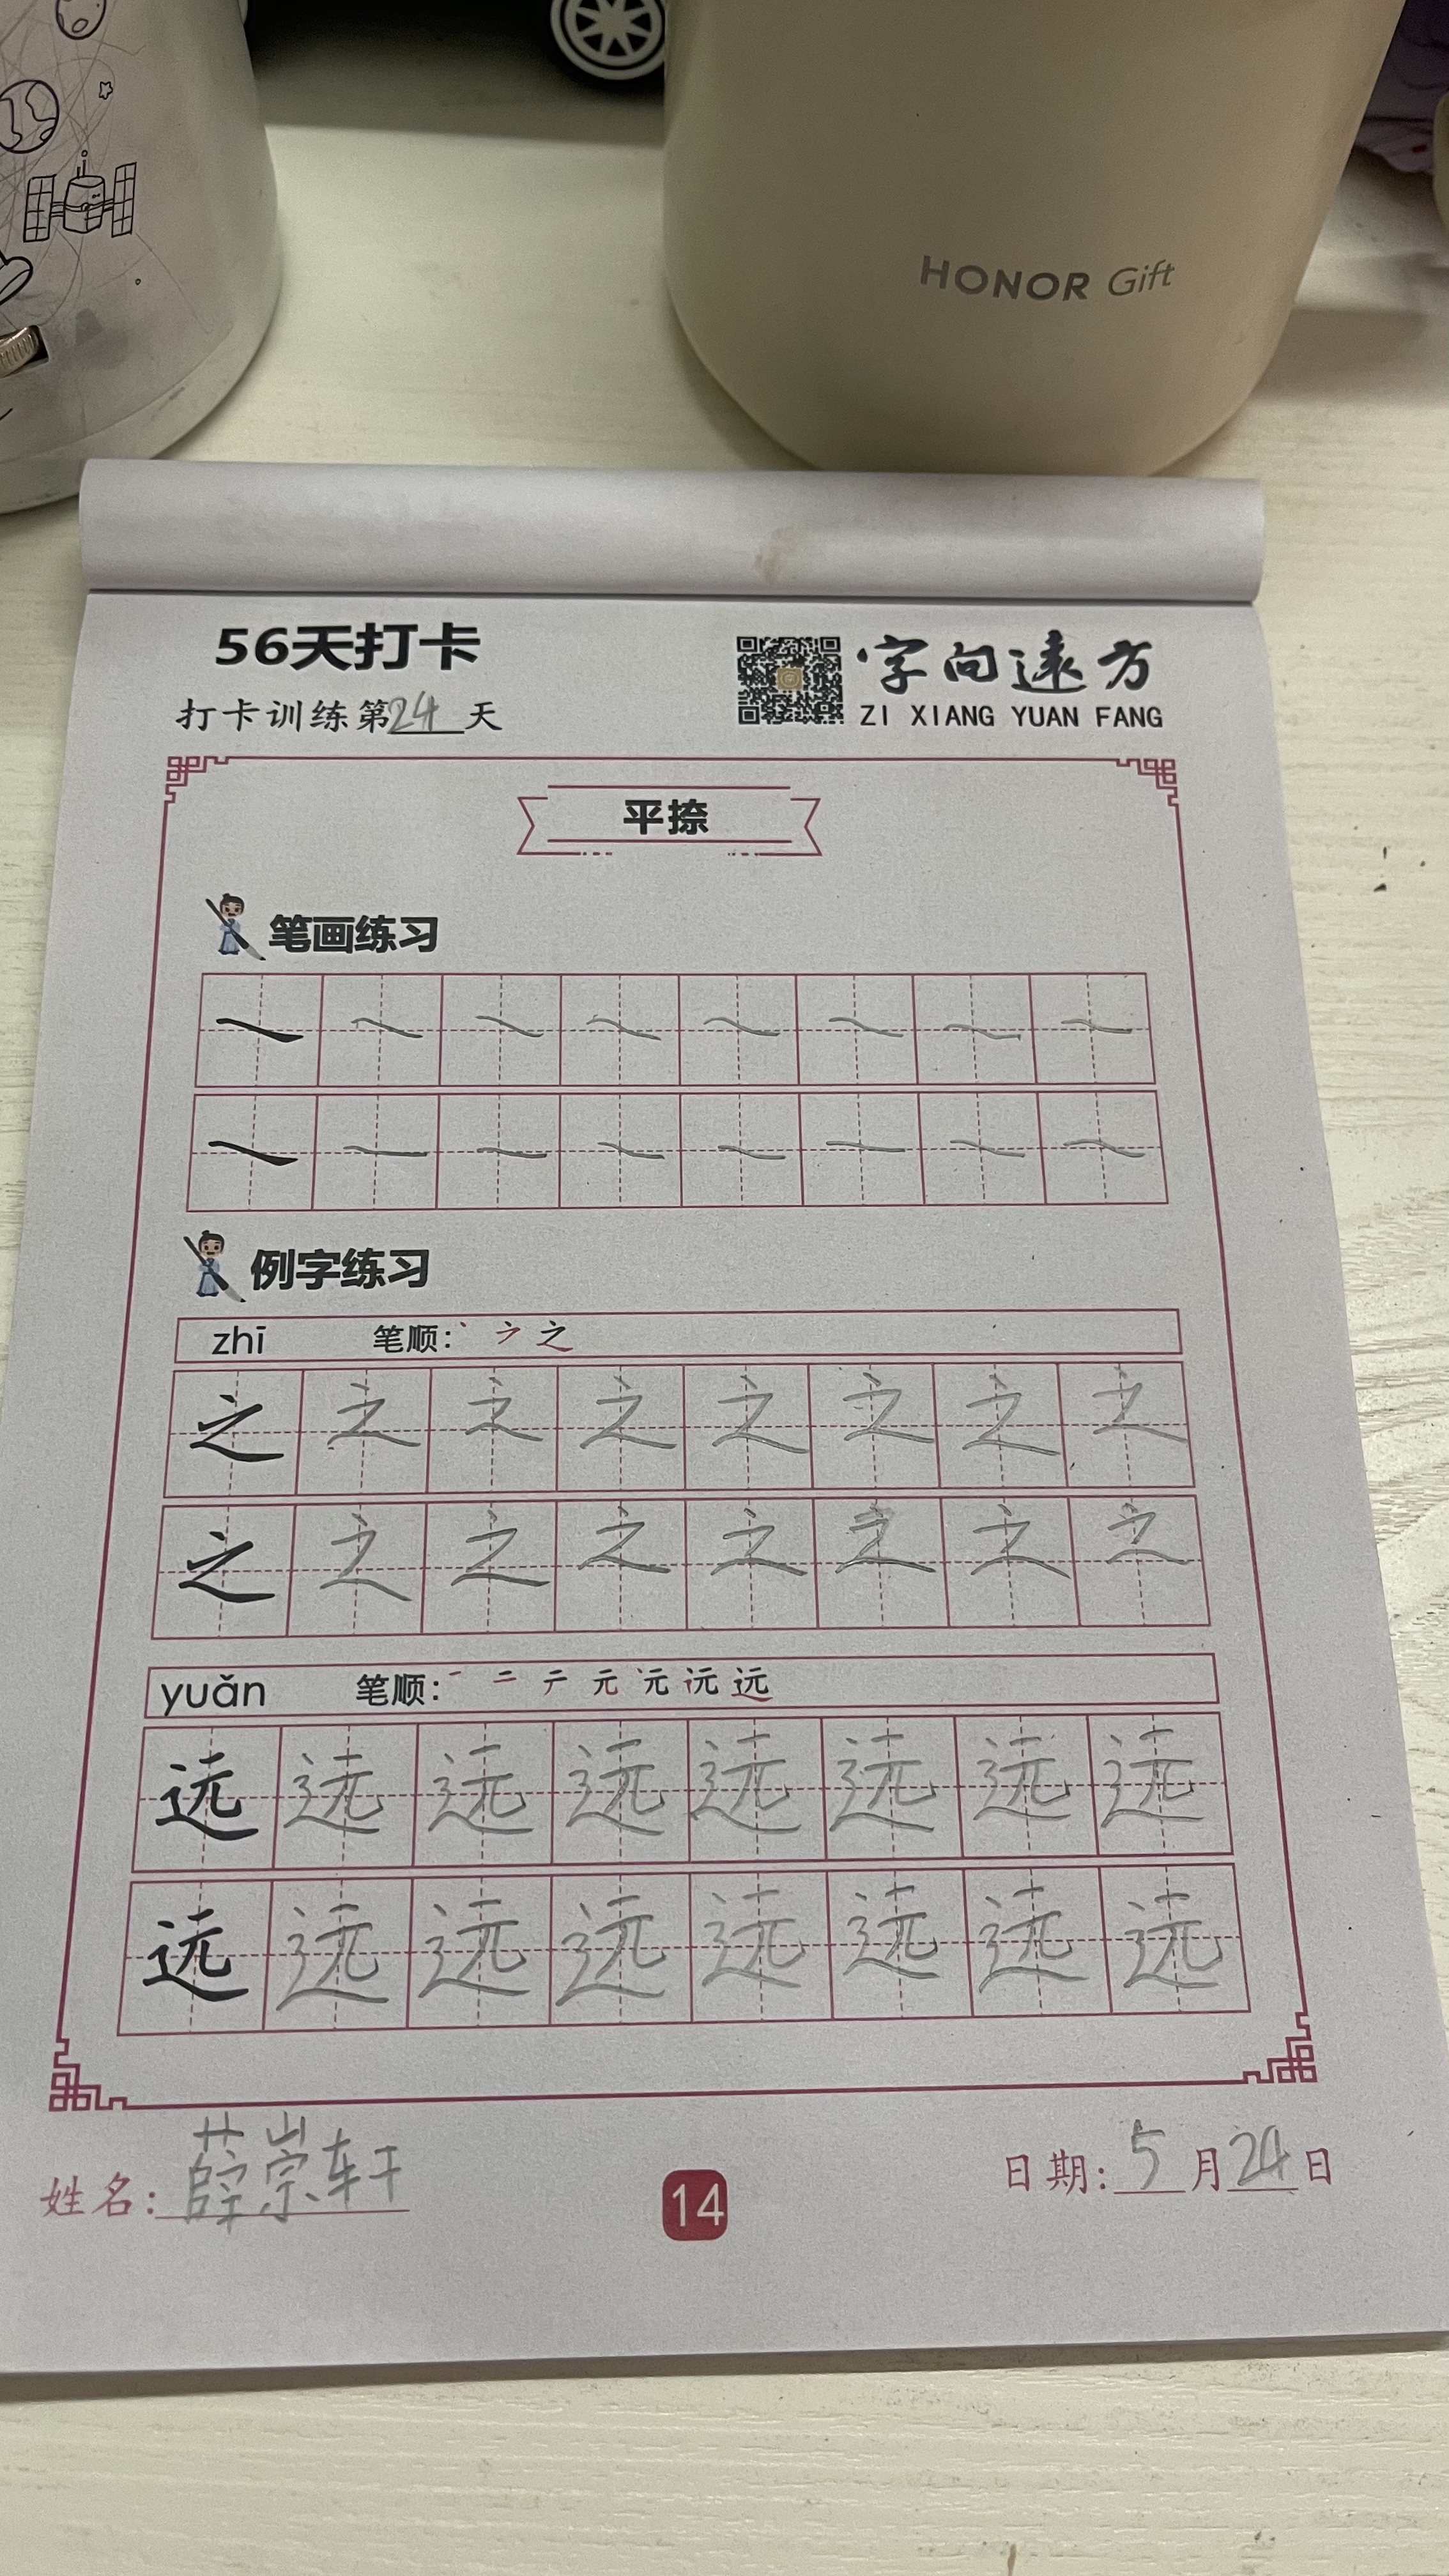 HONOR Gift
56天打卡
打卡训练第24天
字向远方
ZI XIANG YUAN FANG
平捺
笔画练习
例字练习
zhī 笔顺: 丶 ㇇ 之
之 之 之 之 之 之 之 之
之 之 之 之 之 之 之 之
yuǎn 笔顺: 一 二 テ 元 远
远 远 远 远 远 远 远 远
远 远 远 远 远 远 远 远
姓名: 薛崇轩
14
日期: 5月24日